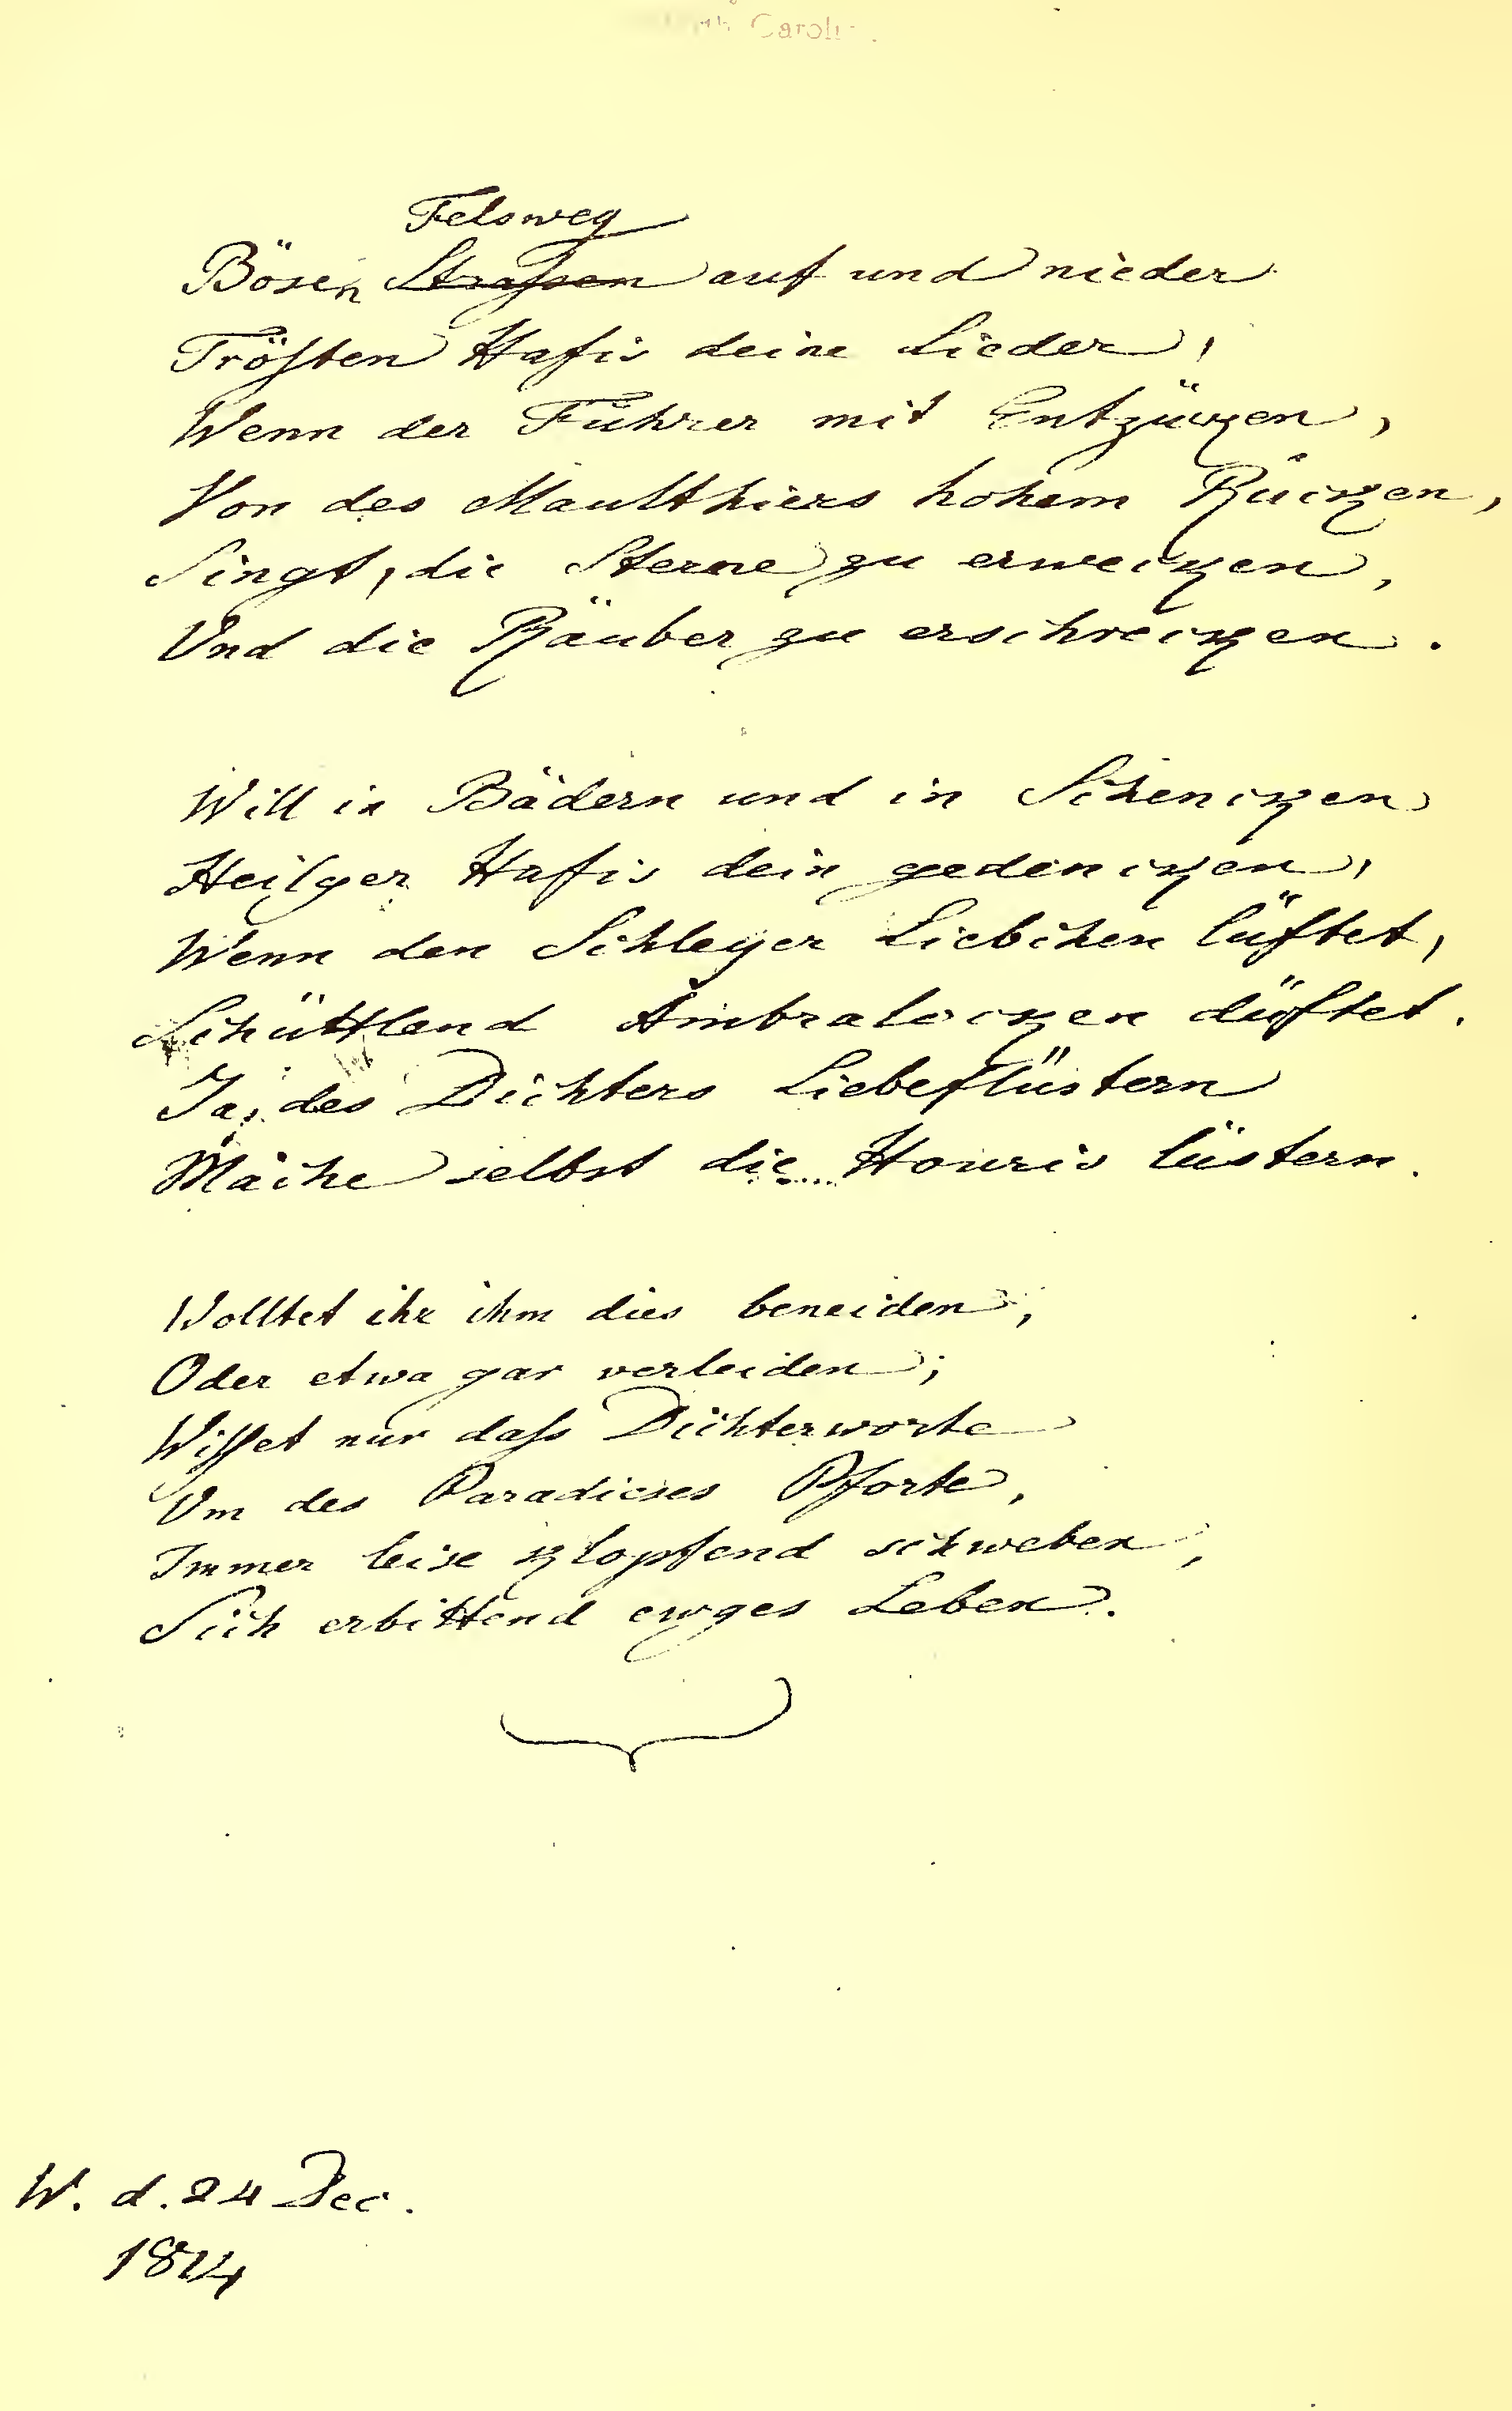 Carolin
Felsweg
Bösen Straßen auf und nieder
Trösten Hafis deine Lieder,
Wenn der Führer mit Entzücken,
Von des Maulthiers hohem Rücken,
Singt, die Sterne zu erwecken,
Und die Räuber zu erschrecken.
Will in Bädern und in Schencken
Heilger Hafis dein gedencken,
Wenn den Schleyer Liebchen lüftet,
Schüttlend Ambralocken düftet.
Ja, des Dichters Liebeflüstern
Mache selbst die Houris lüstern.
Wolltet ihr ihm dies beneiden,
Oder etwa gar verleiden;
Wisset nur dass Dichterworte
Um des Paradieses Pforte,
Immer leise klopfend schweben,
Sich erbittend ewges Leben.
W. d. 24 Dec.
1814